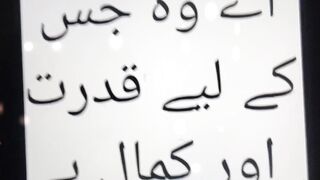 اے وہ جس
کے لیے قدرت
اور کمال ہے